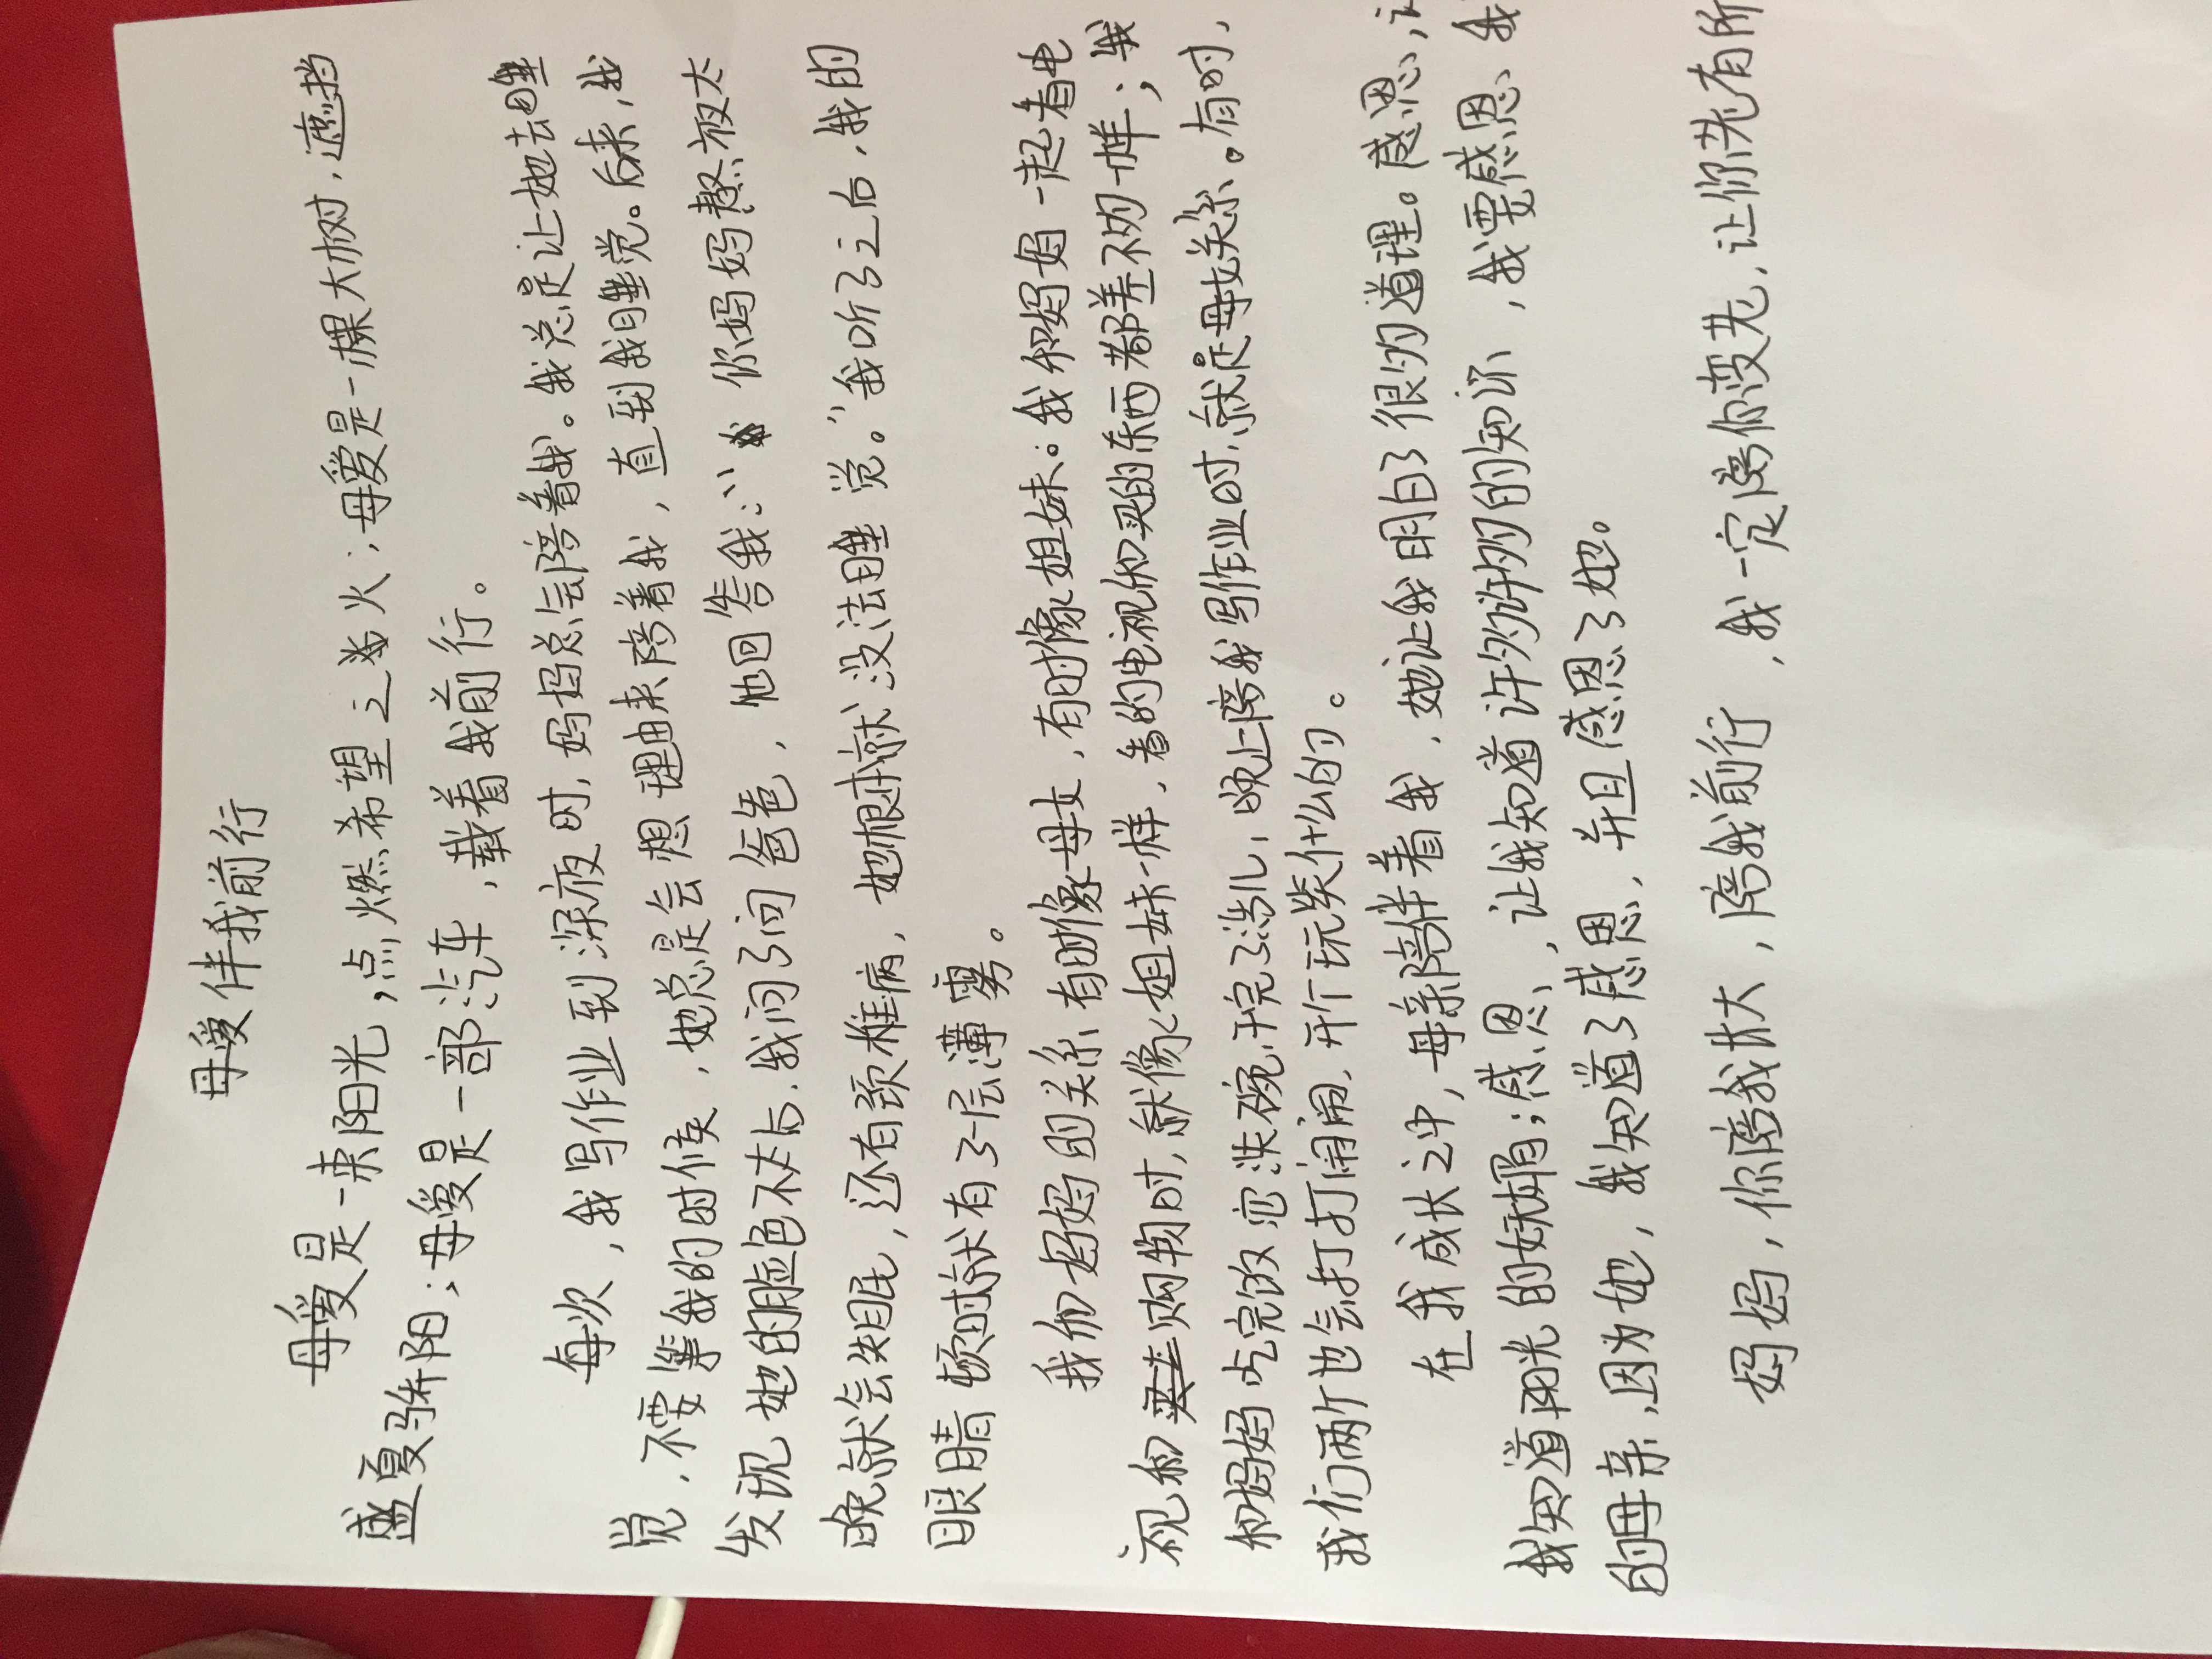 母爱伴我前行
母爱是一束阳光，点燃希望之火；母爱是一棵大树，遮挡
盛夏骄阳；母爱是一部汽车，载着我前行。
每次，我写作业到深夜时，妈妈总会陪着我。我总是让她去睡
觉，不要等我的时候，她总是会想理由来陪着我，直到我睡觉。后来，我
发现她的脸色不太占，我问了问爸爸，他回答我：“你妈妈熬夜太
晚就会失眠，还有颈椎病，她根本就没法睡觉。”我听了之后，我的
眼睛顿时就有了一层薄雾。
我和妈妈的关系有时像母女，有时像姐妹。我和妈妈一起看电
视和购物时，就像姐妹一样，看的电视和买的东西都差不多一样；我
和妈妈吃完饭 洗碗 完了 ，晚上陪我写作业时，就是母女关系。有时，
我们两个也会打打闹闹，开个玩笑什么的。
在我成长之中，母亲陪伴着我，她让我明白了很多道理。感恩，让
我知道阳光的妩媚；感恩，让我知道许多许多的知识，我要感恩 我
的母亲，因为她，我知道了感恩，并且感恩了她。
妈妈，你陪我长大，陪我前行，我一定陪你变老，让你老有所